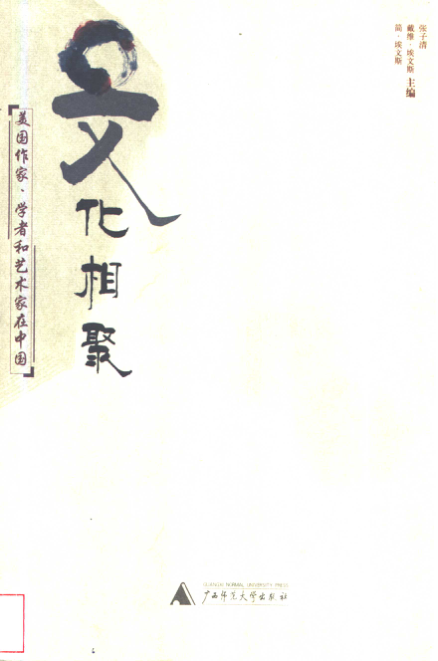 张子清
戴维·埃文斯 主编
简·埃文斯
文化相聚
美国作家·学者和艺术家在中国
GUANGXI NORMAL UNIVERSITY PRESS
广西师范大学出版社